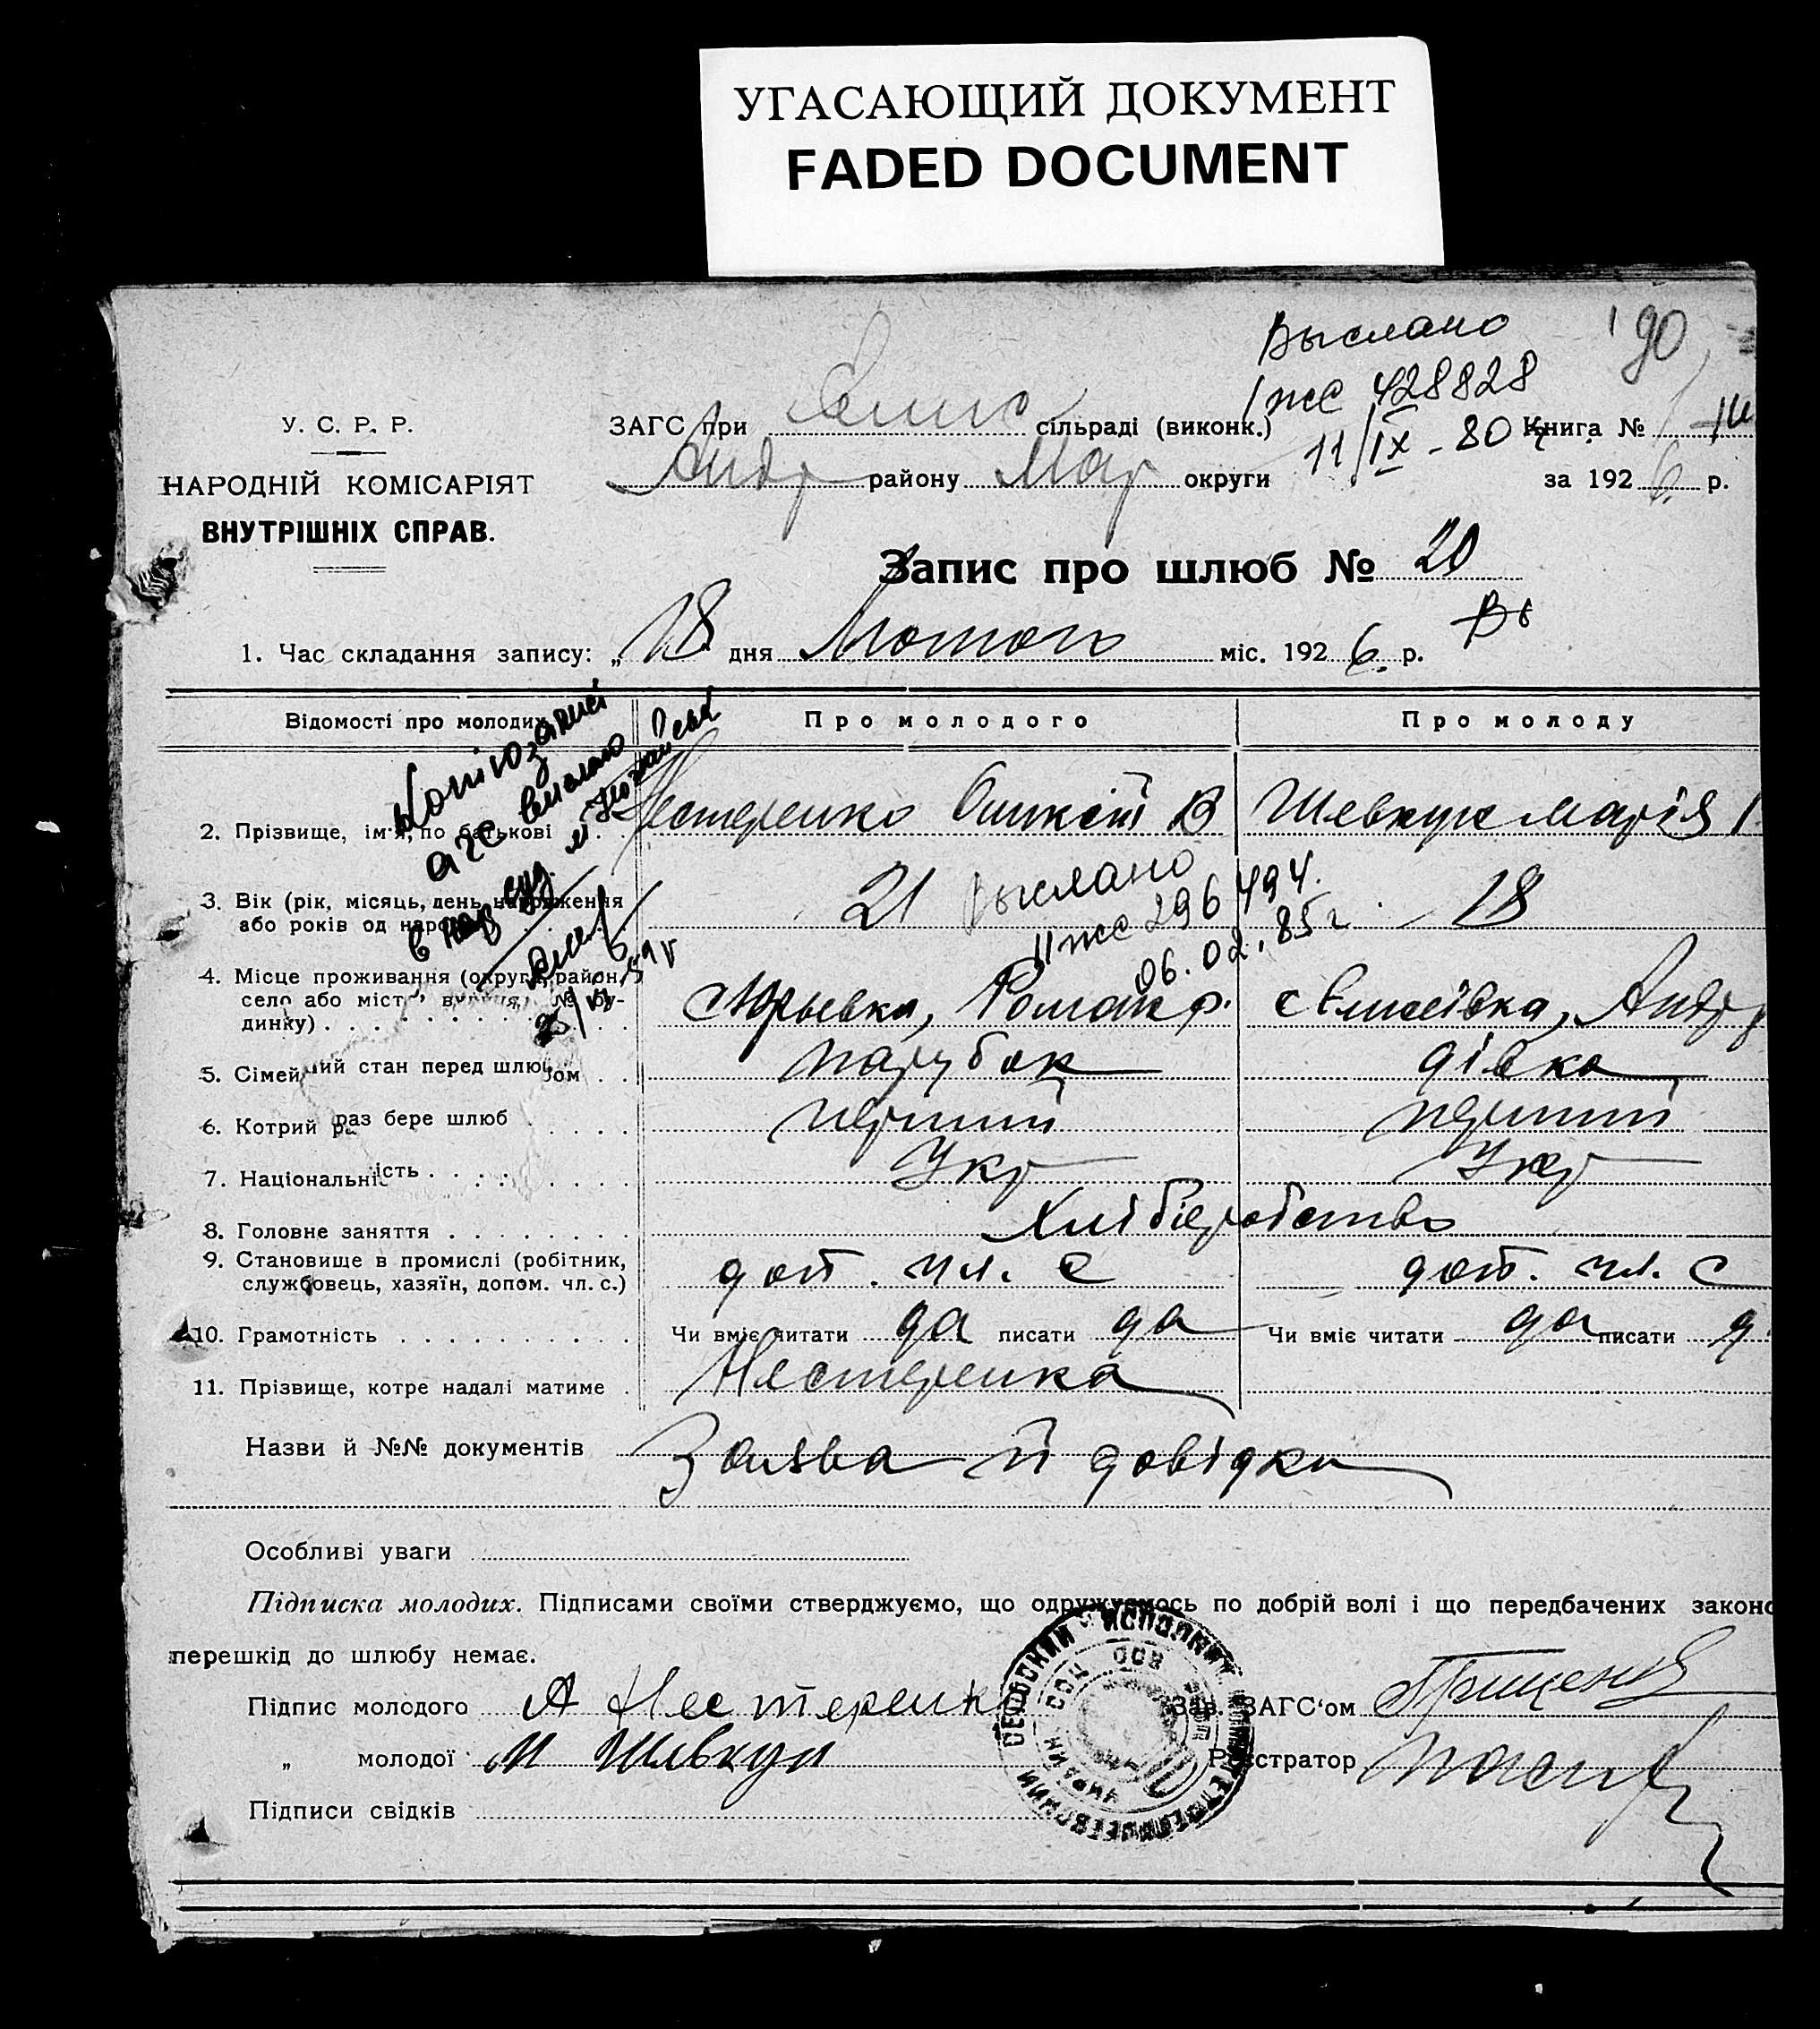 УГАСАЮЩИЙ ДОКУМЕНТ
FADED DOCUMENT
Выслано
190
Iже 428828
11/IX - 80 г.
У. С. Р. Р.
НАРОДНІЙ КОМІСАРІЯТ
ВНУТРІШНІХ СПРАВ.
ЗАГС при сільраді (виконк.) Книга №
Андр району Мар округи за 1926 р.
Запис про шлюб № 20
1. Час складання запису: „18 дня Лютого міс. 1926. р.
Відомості про молодих Про молодого Про молоду
2. Прізвище, ім'я, по батькові Нестеренко В Шевкун Марія
3. Вік (рік, місяць, день народження або років од народ 21 18
Выслано
IIже 296494.
06.02.85г
4. Місце проживання (округа, район, село або місто, вулиця, № будинку) с Юрьевка, Роман р. с Єлисеївка, Андр
5. Сімейний стан перед шлюбом парубок дівка
6. Котрий раз бере шлюб перший перший
7. Національність Укр Укр
8. Головне заняття Хліборобство
9. Становище в промислі (робітник, службовець, хазяїн, допом. чл. с.) доп. чл. с доп. чл. с
10. Грамотність Чи вміє читати да писати да Чи вміє читати да писати д
11. Прізвище, котре надалі матиме Нестеренка
Назви й №№ документів Заява й довідки
Особливі уваги
Підписка молодих. Підписами своїми стверджуємо, що одружуємось по добрій волі і що передбачених законо
перешкід до шлюбу немає.
Підпис молодого А Нестеренко Зав. ЗАГС'ом Грищенко
„ молодої М Шевкун Реєстратор
Підписи свідків